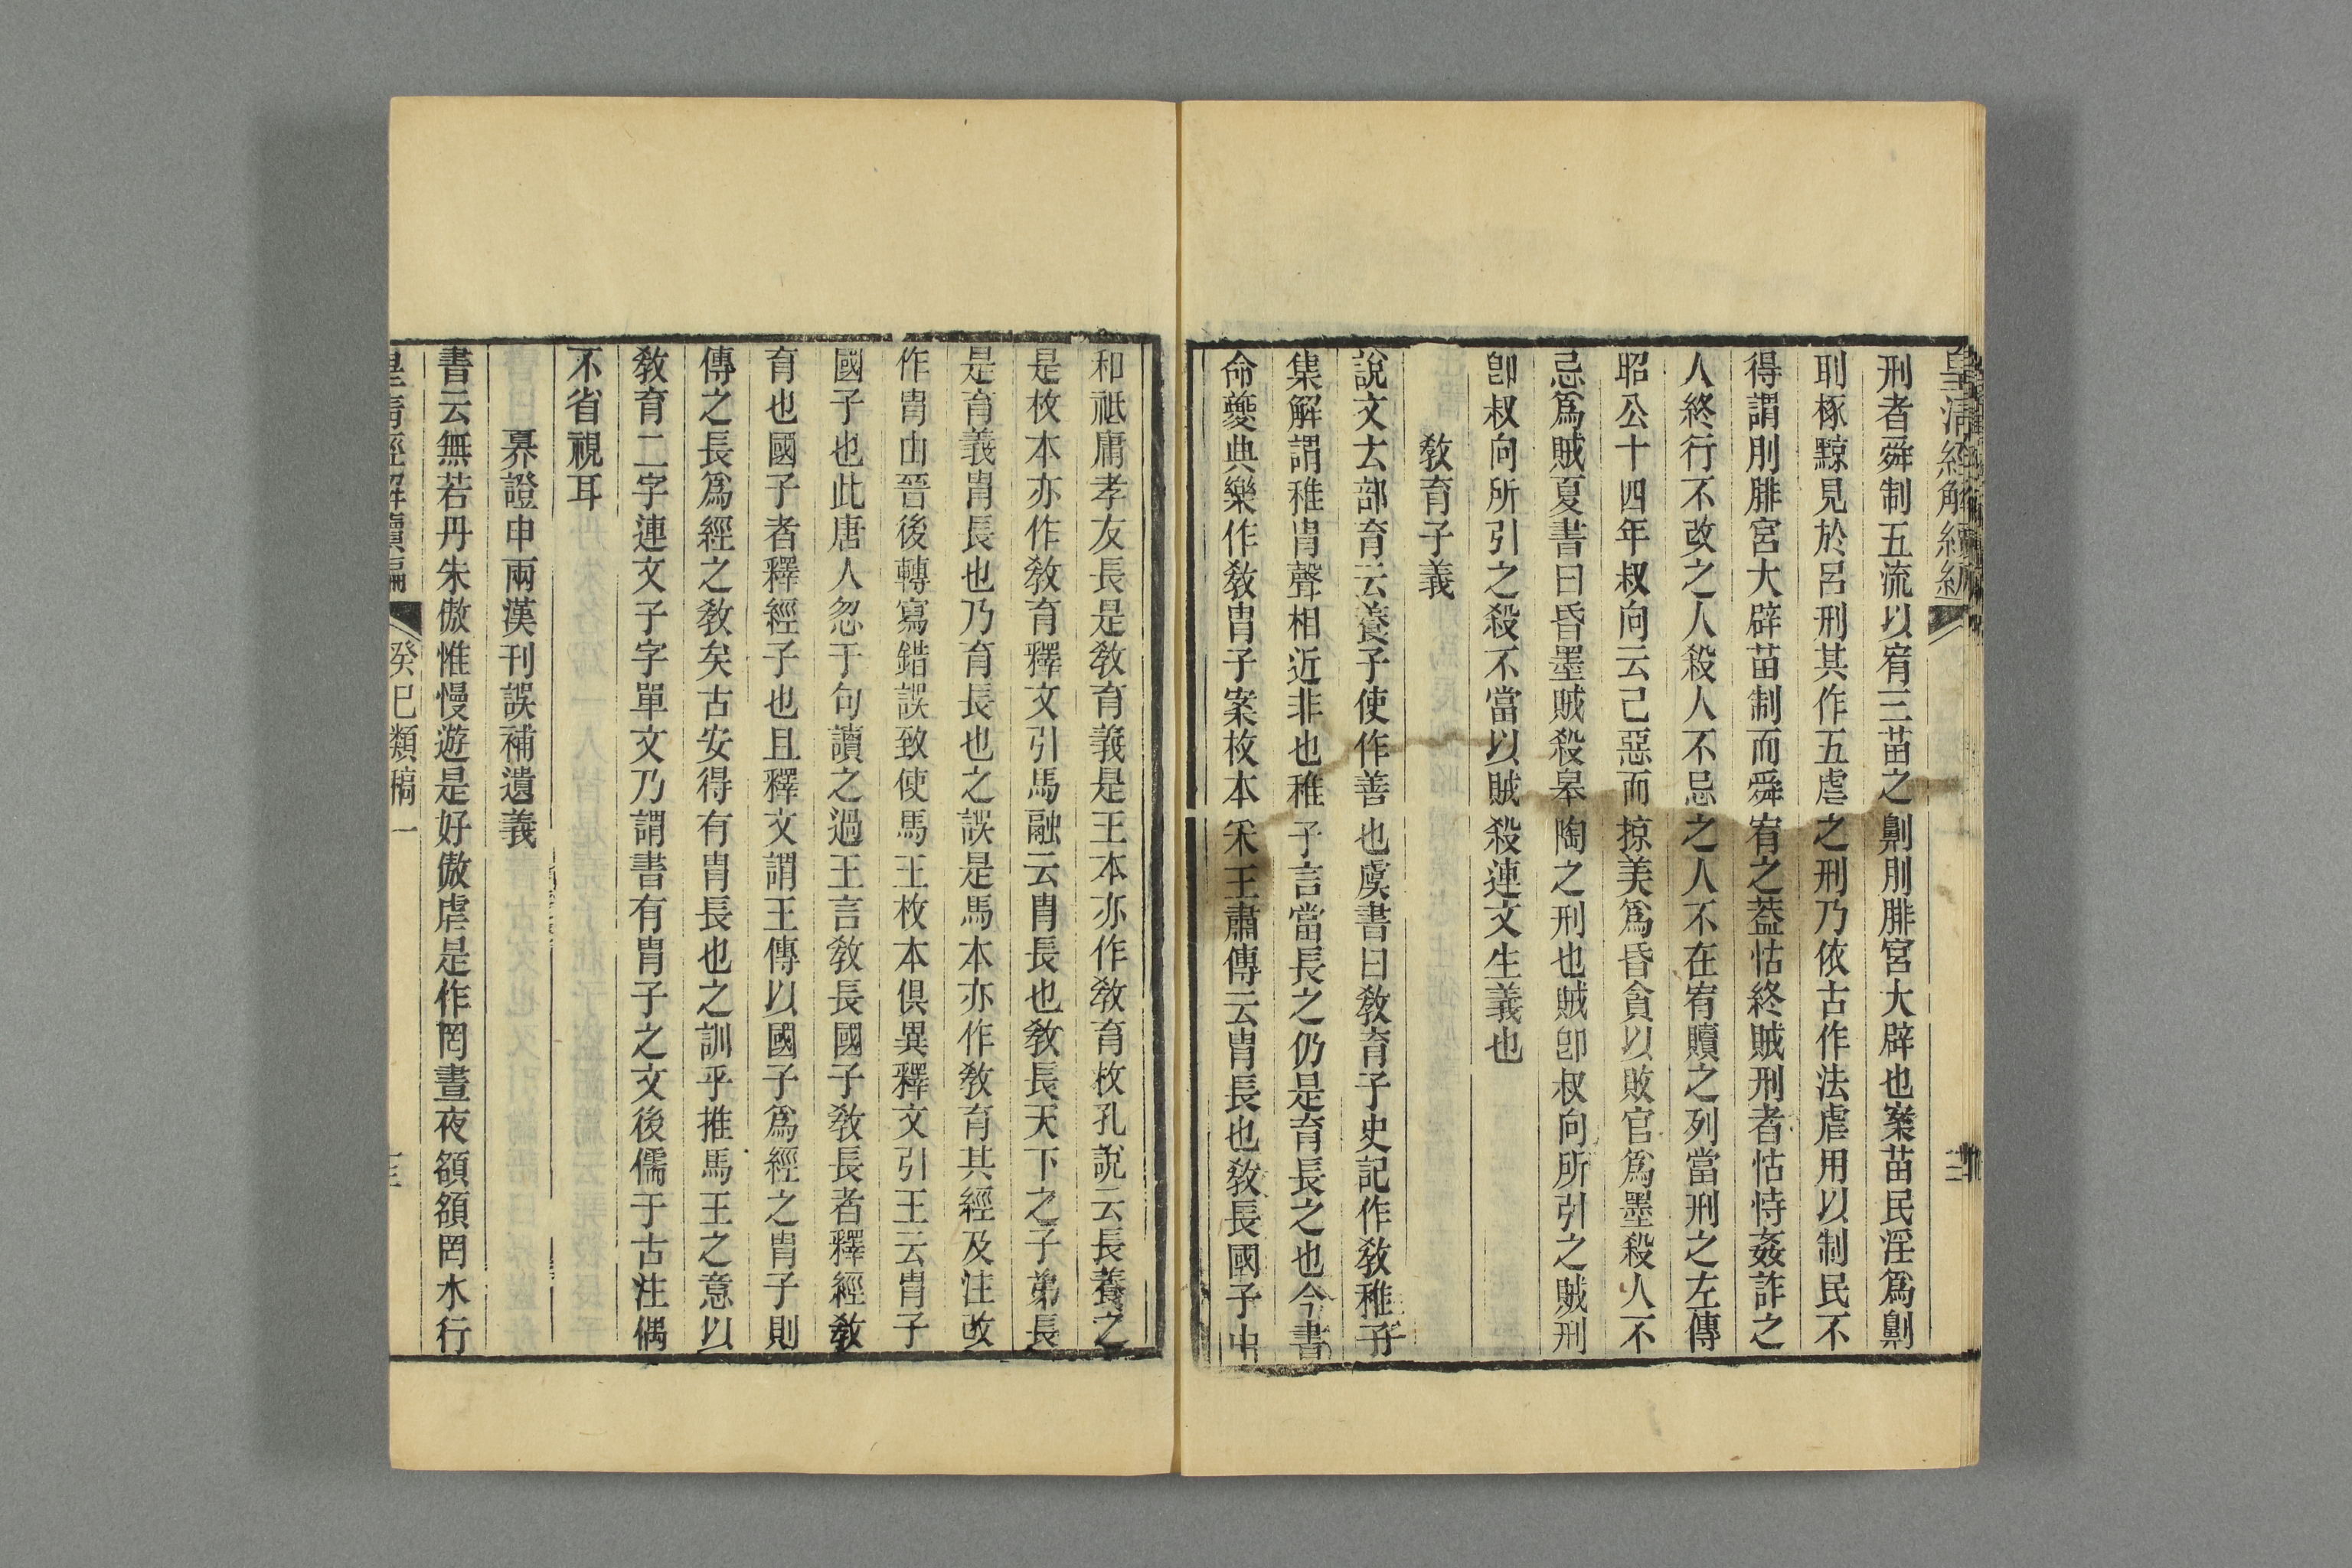 皇清經解續編
刑者舜制五流以宥三苗之劓刖腓宮大辟也案苗民淫爲劓
刵椓黥見於呂刑其作五虐之刑乃依古作法虐用以制民不
得謂刖腓宮大辟苗制而舜宥之葢怙終賊刑者怙恃姦詐之
人終行不改之人殺人不忌之人不在宥贖之列當刑之左傳
昭公十四年叔向云己惡而掠美爲昏貪以敗官爲墨殺人不
忌爲賊夏書曰昏墨賊殺皋陶之刑也賊卽叔向所引之賊刑
卽叔向所引之殺不當以賊殺連文生義也
敎育子義
說文𠫓部育云養子使作善也虞書曰敎育子史記作敎稚子
集解謂稚胄聲相近非也稚子言當長之仍是育長之也今書
命夔典樂作敎胄子案枚本釆王肅傳云胄長也敎長國子中
和祗庸孝友長是敎育義是王本亦作敎育枚孔說云長養之
是枚本亦作敎育釋文引馬融云胄長也敎長天下之子弟長
是育義胄長也乃育長也之誤是馬本亦作敎育其經及注改
作胄由晉後轉寫錯誤致使馬王枚本俱異釋文引王云胄子
國子也此唐人忽于句讀之過王言敎長國子敎長者釋經敎
育也國子者釋經子也且釋文謂王傳以國子爲經之胄子則
傳之長爲經之敎矣古安得有胄長也之訓乎推馬王之意以
敎育二字連文子字單文乃謂書有胄子之文後儒于古注偶
不省視耳
奡證申兩漢刊誤補遺義
書云無若丹朱傲惟慢遊是好傲虐是作罔晝夜頟頟罔水行
皇清經解續編 癸巳類稿一 三